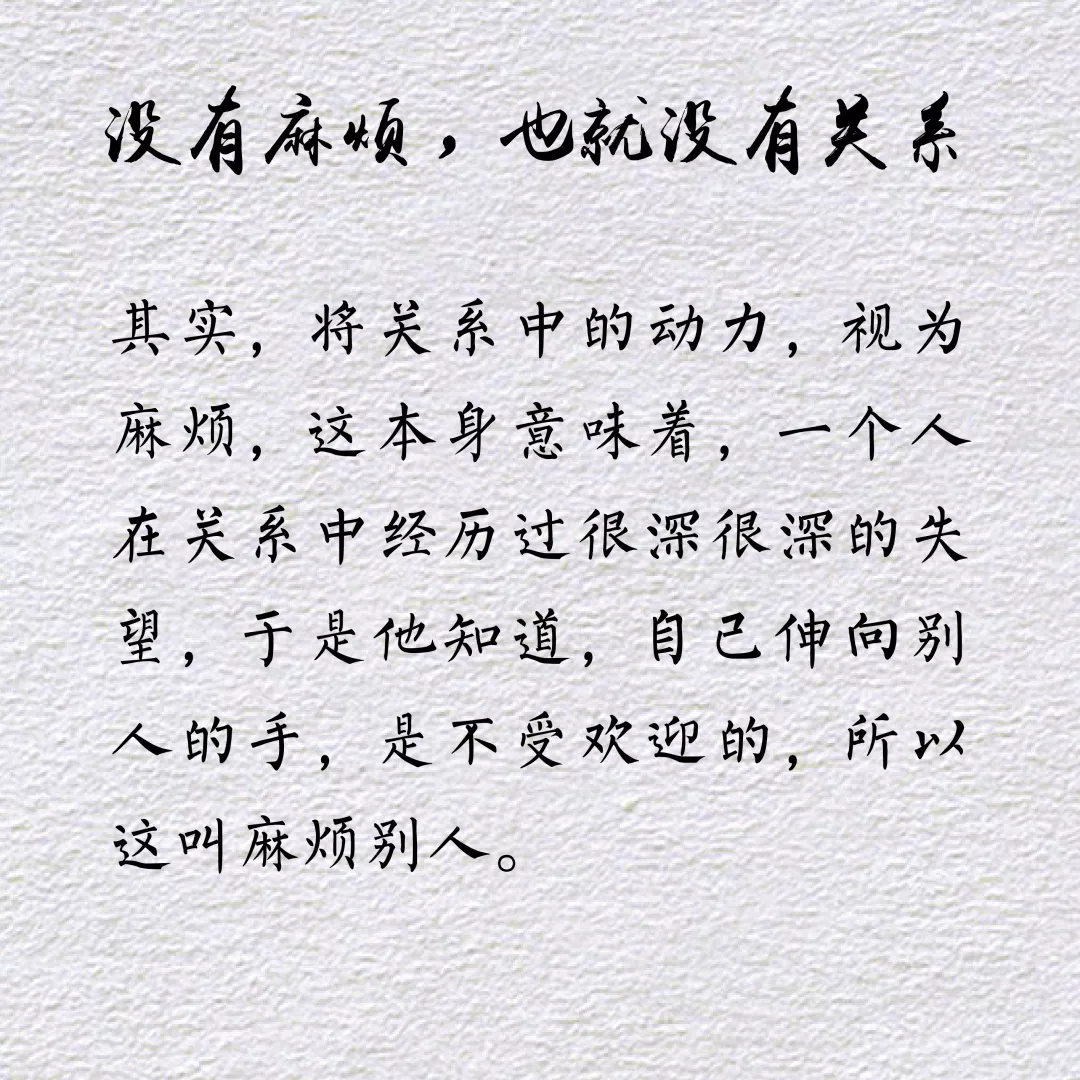 没有麻烦，也就没有关系
其实，将关系中的动力，视为
麻烦，这本身意味着，一个人
在关系中经历过很深很深的失
望，于是他知道，自己伸向别
人的手，是不受欢迎的，所以
这叫麻烦别人。